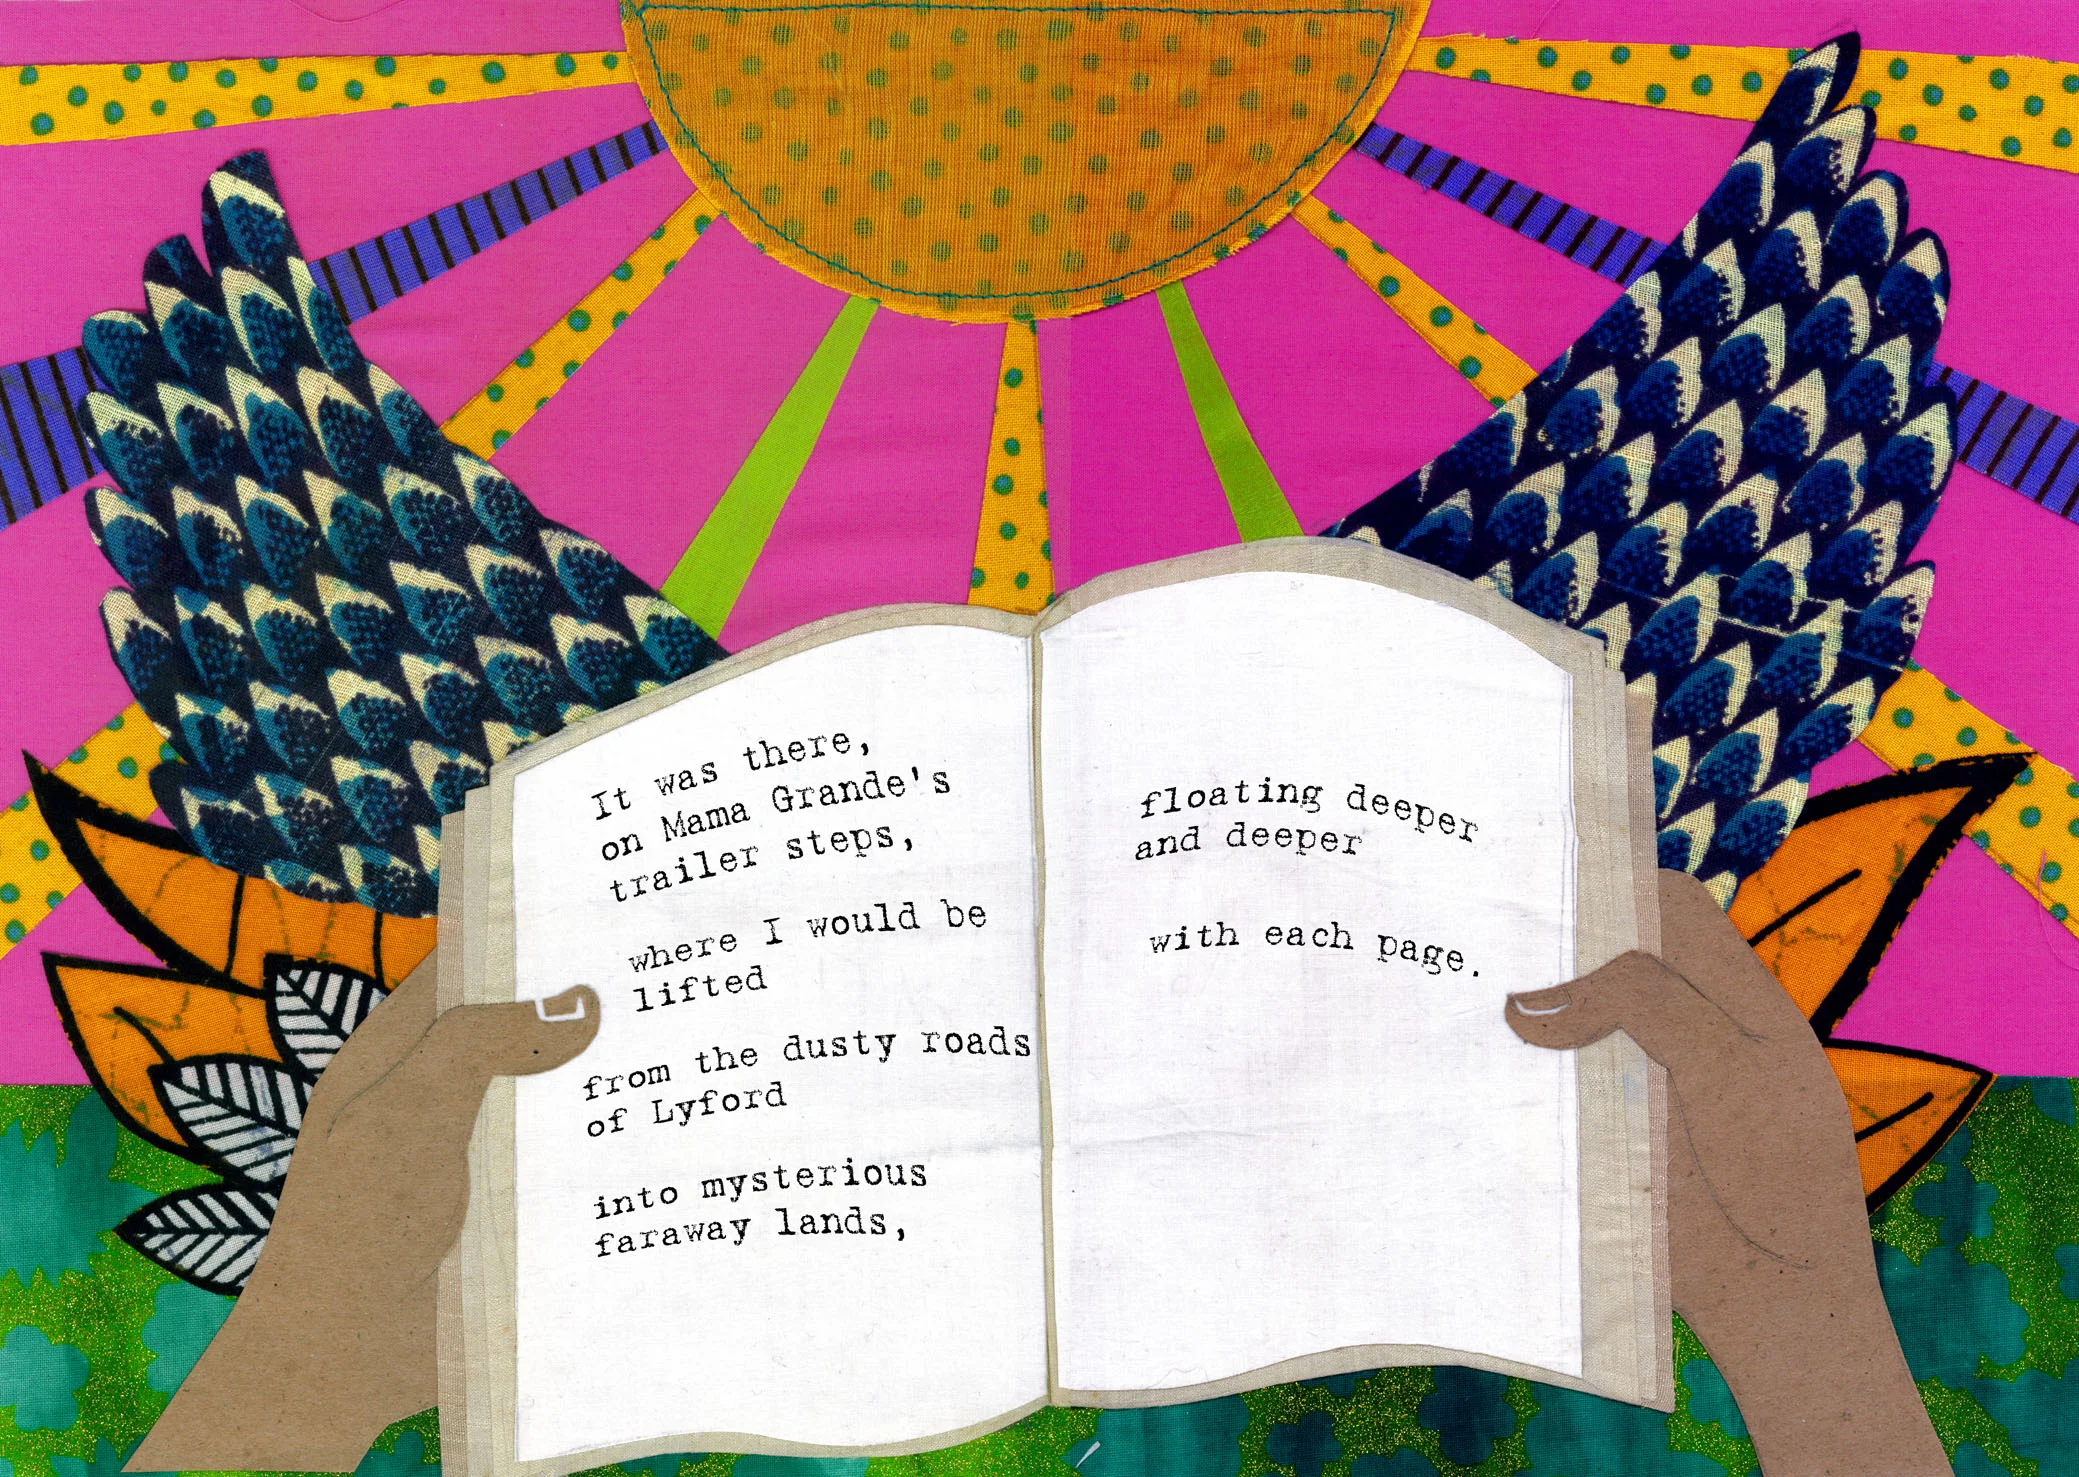 It was there,
on Mama Grande's
trailer steps,
where I would be
lifted
from the dusty roads
of Lyford
into mysterious
faraway lands,
floating deeper
and deeper
with each page.